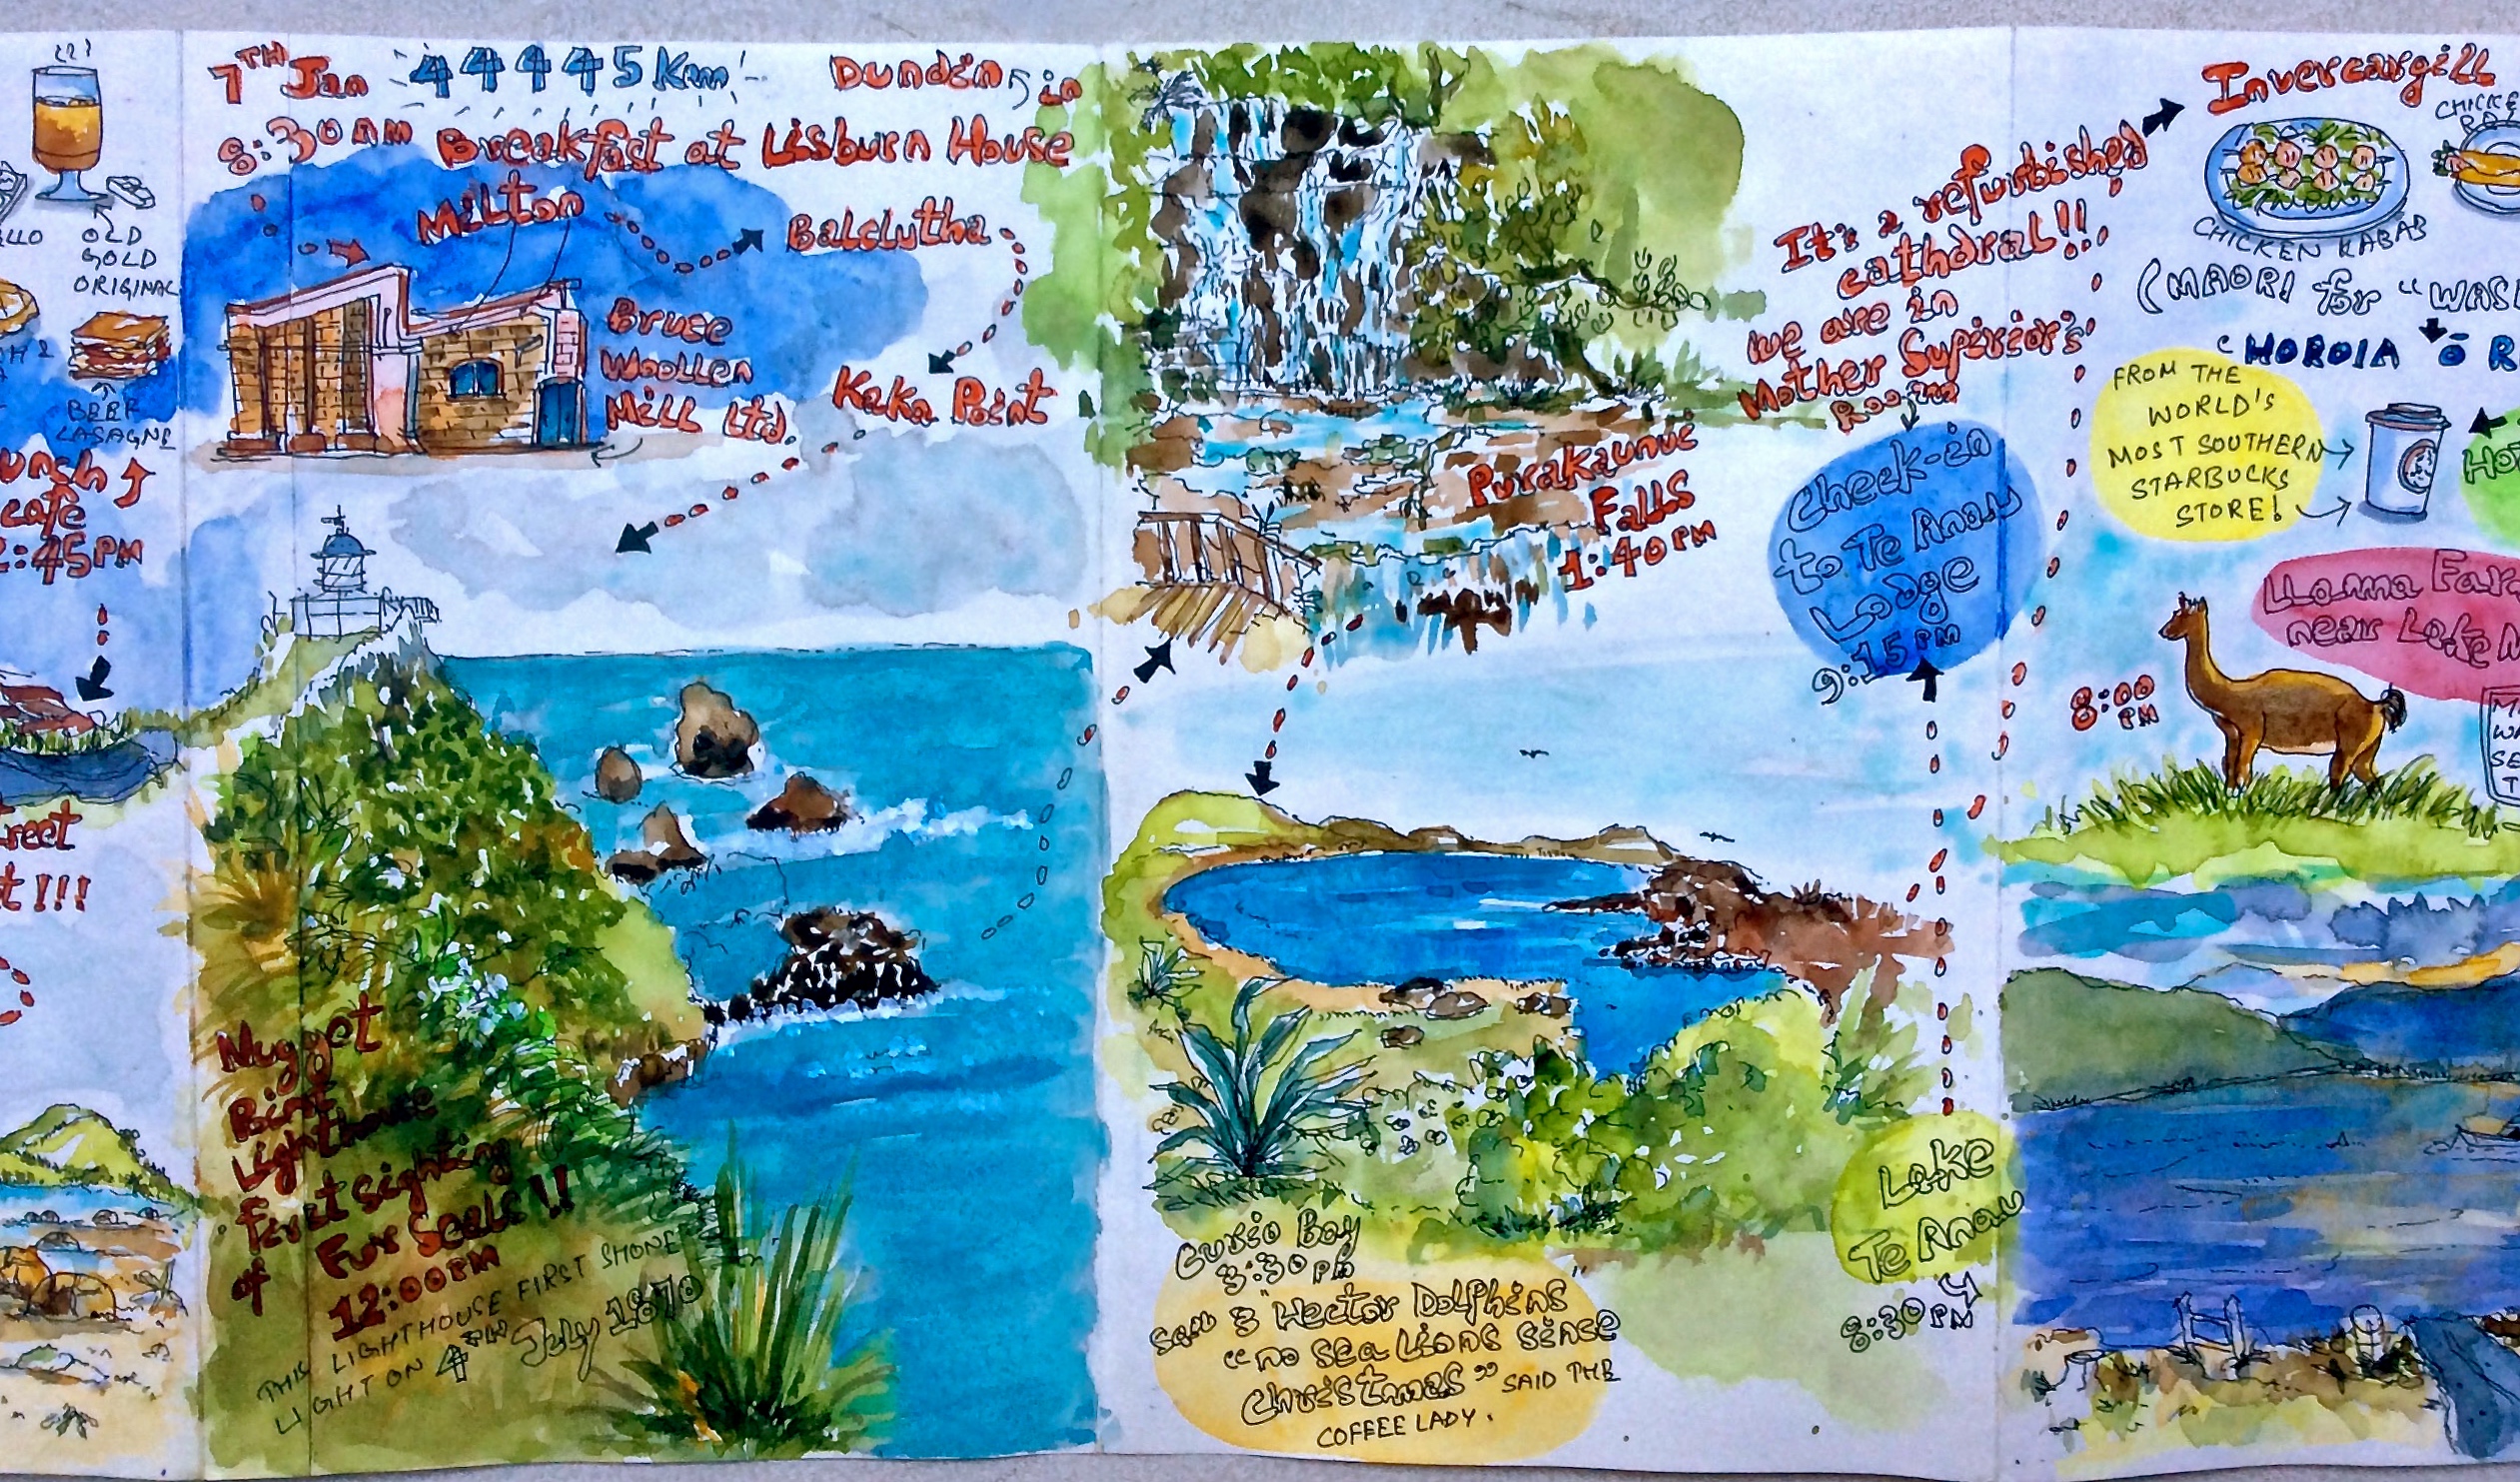 OLD
GOLD
ORIGINAL
BEEF
LASAGNE
cafe
2:45PM
7TH Jan 44445 Km Dundin in
8:30AM Breakfast at Lisburn House
Milton
Balclutha
Bruce
Woollen
Mill Ltd.
Kaka Point
Nugget
Point
Lighthouse
First sighting
of Fur Seals!!
12:00PM
THIS LIGHTHOUSE FIRST SHONE
LIGHT ON 4TH July 1870
Purakaunui
Falls
1:40PM
Curio Bay
3:30PM
saw 3 "Hector Dolphins"
"no sea Lions sinse
christmas" SAID THE
COFFEE LADY.
Lake
Te Anau
8:30PM
Check-in
to Te Anau
Lodge
9:15PM
It's a refurbished
cathdral!!
we are in
Mother Supirior's
Room
Invercargill
CHICKEN KABAB
(MAORI for "WAS
HOROIA Ō R
FROM THE
WORLD'S
MOST SOUTHERN
STARBUCKS
STORE!
Llama Far
near Lake
8:00
PM